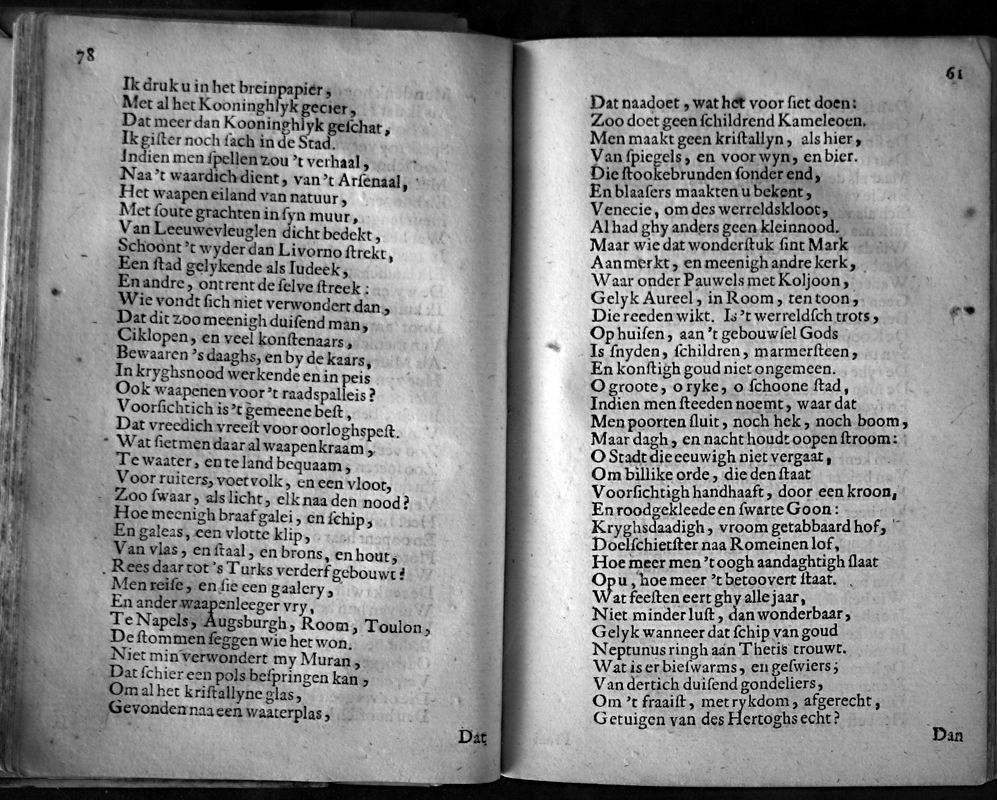 78
Ik druk u in het breinpapier,
Met al het Kooninghlyk gecier,
Dat meer dan Kooninghlyk geſchat,
Ik giſter noch ſach in de Stad.
Indien men ſpellen zou 't verhaal,
Naa 't waardich dient, van 't Arſenaal,
Het waapen eiland van natuur,
Met ſoute grachten in ſyn muur,
Van Leeuwevleuglen dicht bedekt,
Schoont 't wyder dan Livorno ſtrekt,
Een ſtad gelykende als Iudeek,
En andre, ontrent de ſelve ſtreek:
Wie vondt ſich niet verwondert dan,
Dat dit zoo meenigh duiſend man,
Ciklopen, en veel konſtenaars,
Bewaaren 's daaghs, en by de kaars,
In kryghsnood werkende en in peis
Ook waapenen voor 't raadspalleis?
Voorſichtich is 't gemeene beſt,
Dat vreedich vreeſt voor oorloghspeſt.
Wat ſietmen daar al waapenkraam,
Te waater, en te land bequaam,
Voor ruiters, voetvolk, en een vloot,
Zoo ſwaar, als licht, elk naa den nood?
Hoe meenigh braaf galei, en ſchip,
En galeas, een vlotte klip,
Van vlas, en ſtaal, en brons, en hout,
Rees daar tot 's Turks verderf gebouwt?
Men reiſe, en ſie een gaalery,
En ander waapenleeger vry,
Te Napels, Augsburgh, Room, Toulon,
De ſtommen ſeggen wie het won.
Niet min verwondert my Muran,
Dat ſchier een pols beſpringen kan,
Om al het kriſtallyne glas,
Gevonden naa een waaterplas,
Dat
61
Dat naadoet, wat het voor ſiet doen:
Zoo doet geen ſchildrend Kameleoen.
Men maakt geen kriſtallyn, als hier,
Van ſpiegels, en voor wyn, en bier.
Die ſtookebrunden ſonder end,
En blaaſers maakten u bekent,
Venecie, om des werreldskloot,
Al had ghy anders geen kleinnood.
Maar wie dat wonderſtuk ſint Mark
Aanmerkt, en meenigh andre kerk,
Waar onder Pauwels met Koljoon,
Gelyk Aureel, in Room, ten toon,
Die reeden wikt. Is 't werreldſch trots,
Op huiſen, aan 't gebouwſel Gods
Is ſnyden, ſchildren, marmerſteen,
En konſtigh goud niet ongemeen.
O groote, o ryke, o ſchoone ſtad,
Indien men ſteeden noemt, waar dat
Men poorten ſluit, noch hek, noch boom,
Maar dagh, en nacht houdt oopen ſtroom:
O Stadt die eeuwigh niet vergaat,
Om billike orde, die den ſtaat
Voorſichtigh handhaaft, door een kroon,
En roodgekleede en ſwarte Goon:
Kryghsdaadigh, vroom getabbaard hof,
Doelſchietſter naa Romeinen lof,
Hoe meer men 't oogh aandaghtigh ſlaat
Op u, hoe meer 't betoovert ſtaat.
Wat feeſten eert ghy alle jaar,
Niet minder luſt, dan wonderbaar,
Gelyk wanneer dat ſchip van goud
Neptunus ringh aan Thetis trouwt.
Wat is er bieſwarms, en geſwiers,
Van dertich duiſend gondeliers,
Om 't fraaiſt, met rykdom, afgerecht,
Getuigen van des Hertoghs echt?
Dan